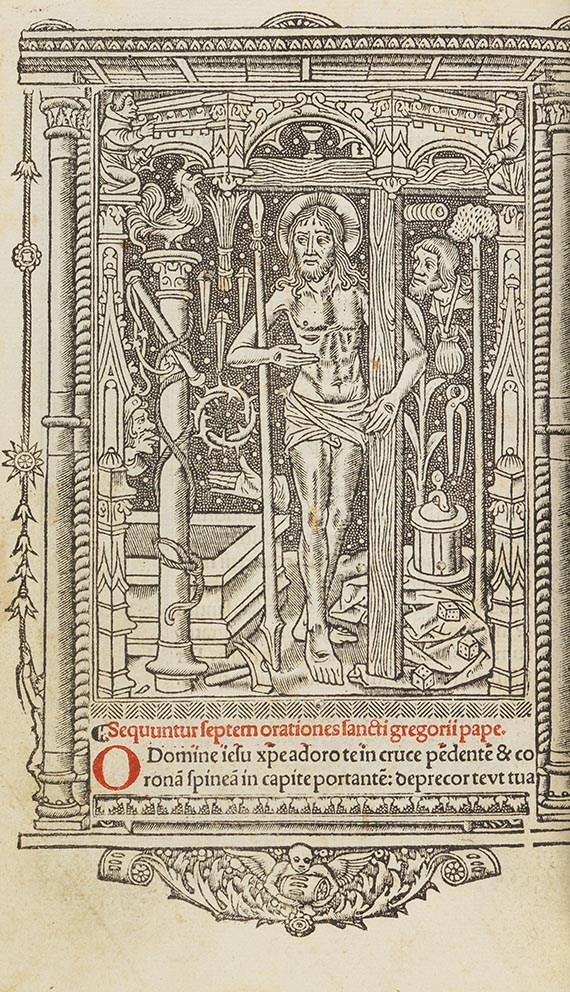 Sequuntur septem orationes sancti gregorii pape.
O Domine iesu xp̄e adoro te in cruce pēdentē & co
ronā spineā in capite portantē: deprecor te vt tua